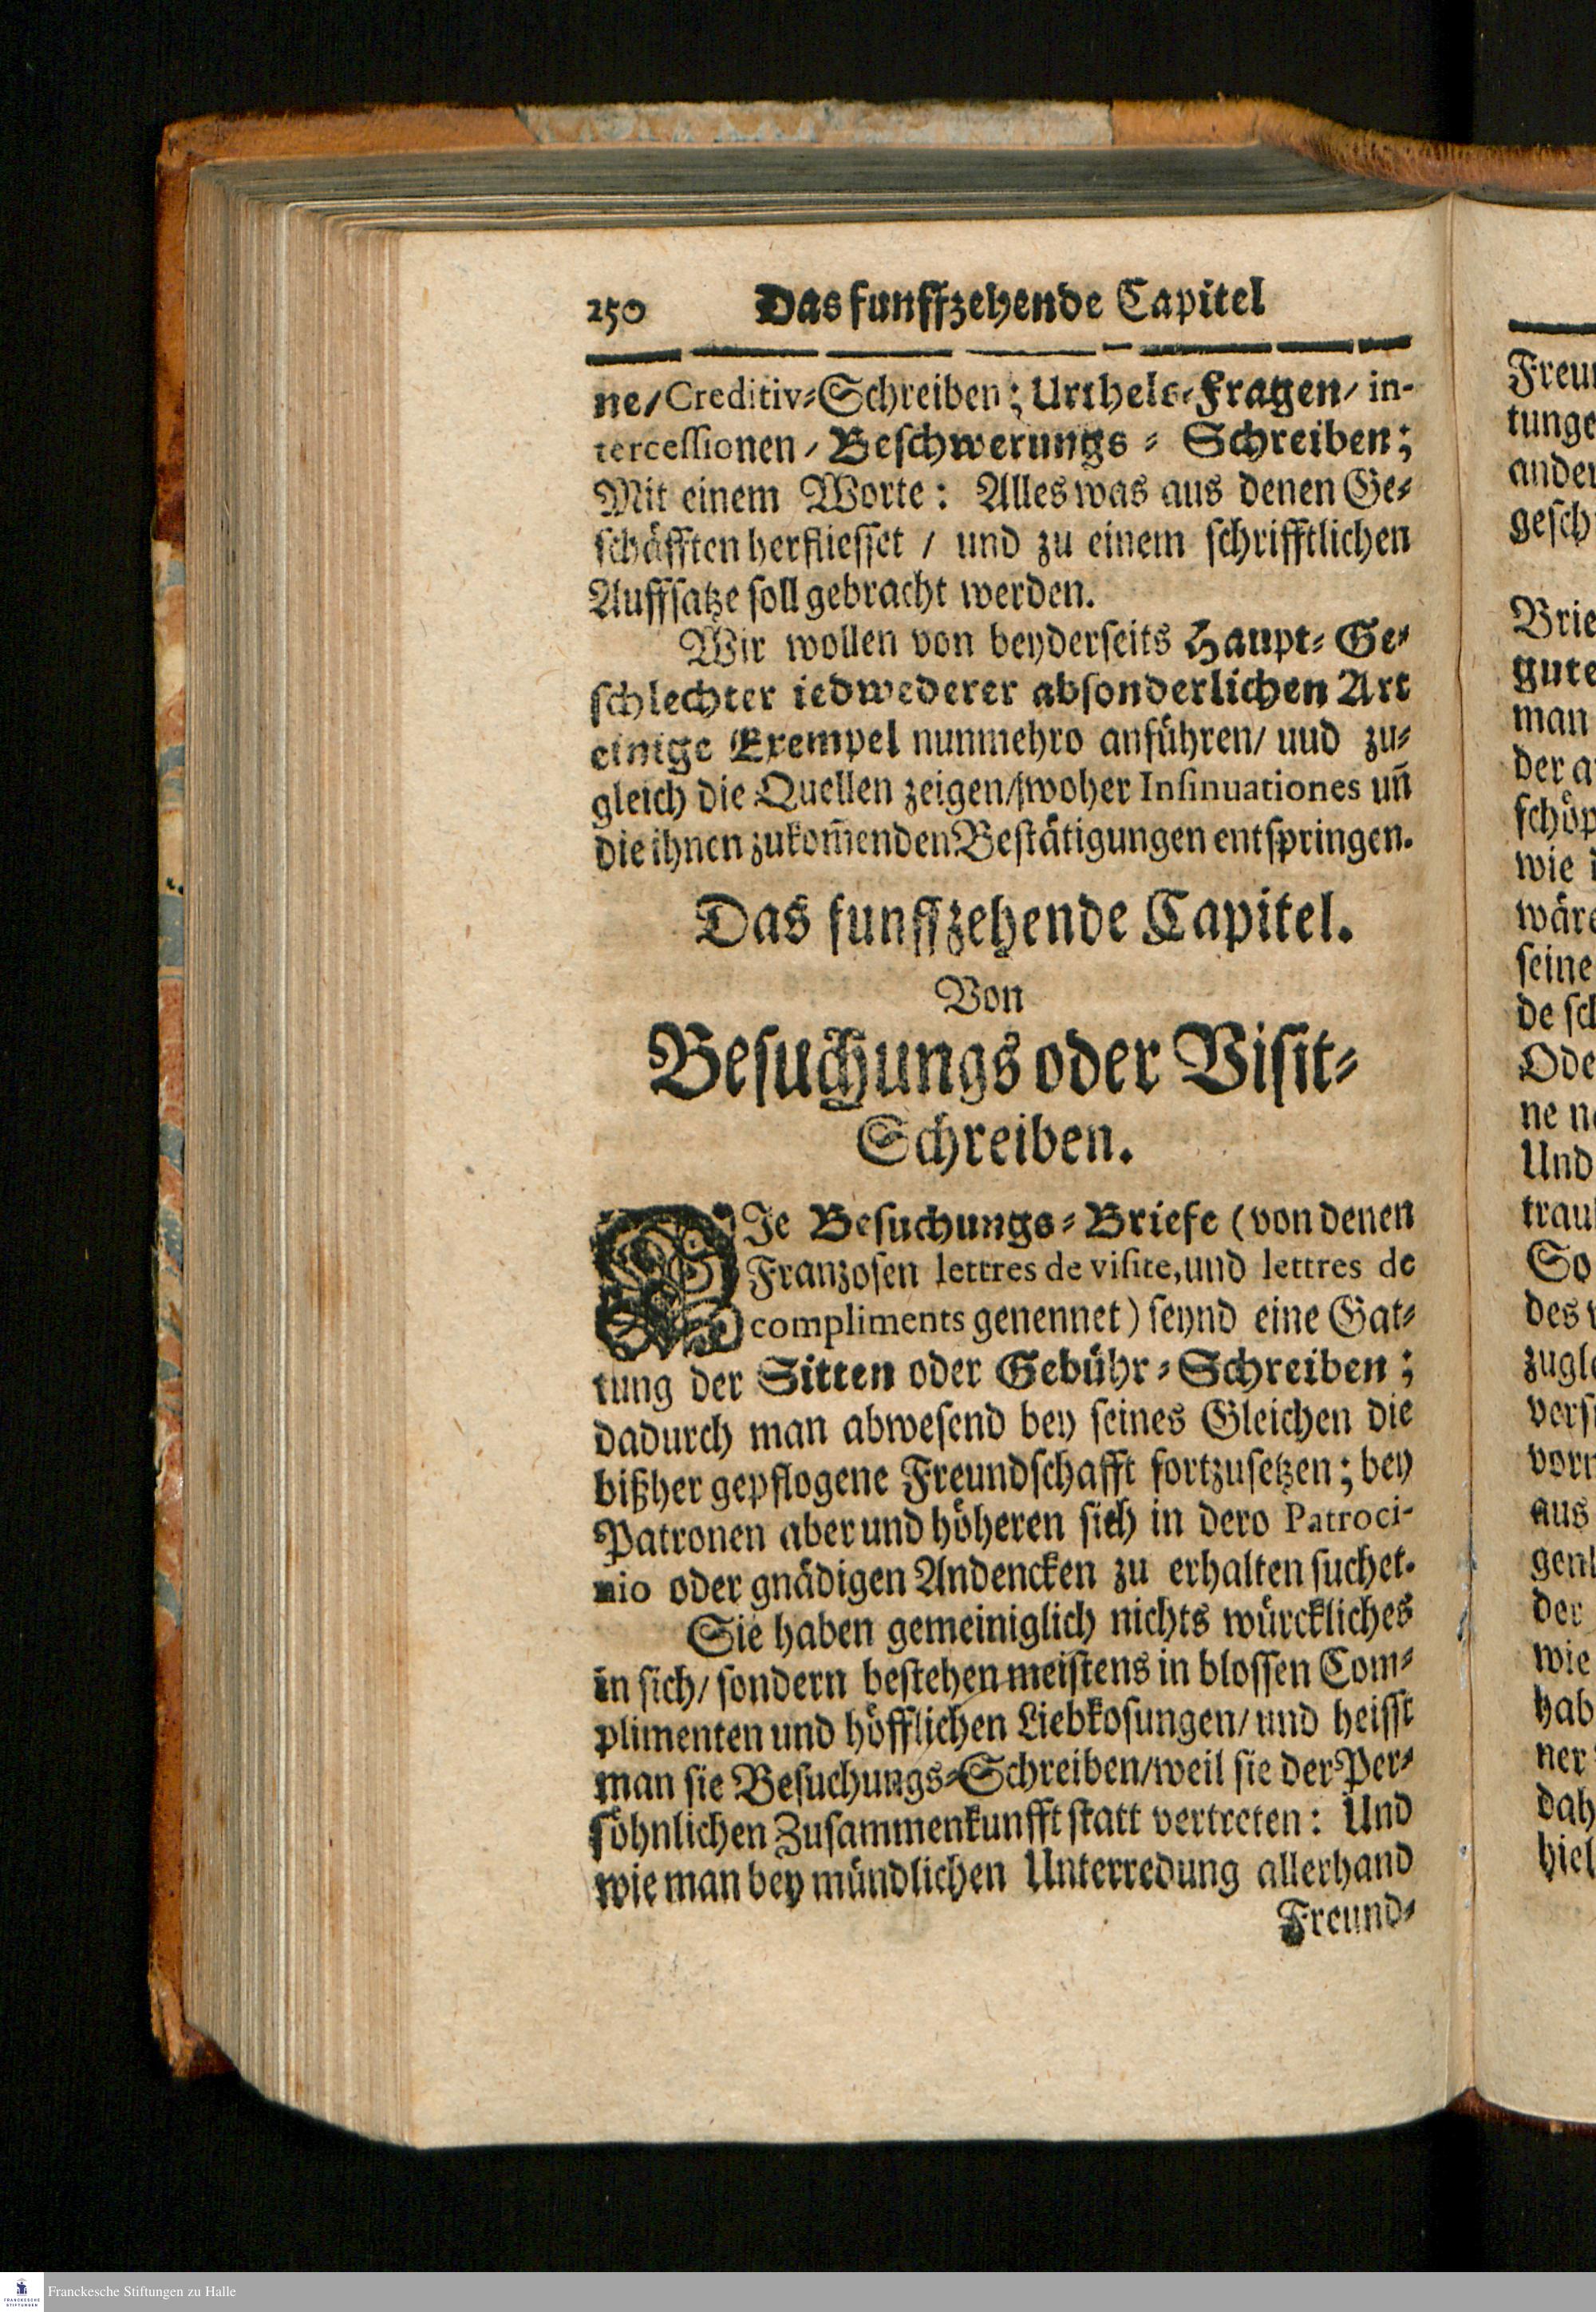 250 Das funffzehende Capitel
ne/ Creditiv-Schreiben; Urthels-Fragen/ in-
tercessionen/ Beschwerungs-Schreiben;
Mit einem Worte: Alles was aus denen Ge-
schäfften herfliesset / und zu einem schrifftlichen
Auffsatze soll gebracht werden.
Wir wollen von beyderseits Haupt-Ge-
schlechter iedwederer absonderlichen Art
einige Exempel nunmehro anführen/ uud zu-
gleich die Quellen zeigen/ woher Insinuationes uñ
die ihnen zukom̃enden Bestätigungen entspringen.
Das funffzehende Capitel.
Von
Besuchungs oder Visit-
Schreiben.
DIe Besuchungs-Briefe (von denen
Franzosen lettres de visite, und lettres de
compliments genennet) seynd eine Gat-
tung der Sitten oder Gebühr-Schreiben;
dadurch man abwesend bey seines Gleichen die
bißher gepflogene Freundschafft fortzusetzen; bey
Patronen aber und höheren sich in dero Patroci-
nio oder gnädigen Andencken zu erhalten suchet.
Sie haben gemeiniglich nichts würckliches
in sich/ sondern bestehen meistens in blossen Com-
plimenten und höfflichen Liebkosungen/ und heisst
man sie Besuchungs-Schreiben/ weil sie der Per-
söhnlichen Zusammenkunfft statt vertreten: Und
wie man bey mündlichen Unterredung allerhand
Freund-
Freu
tunge
ander
gesch
Brie
gute
man
der a
schöp
wie
wäre
seine
de sch
Ode
ne n
Und
trau
So
des
zugl
vers
vorn
aus
der
wie
hab
ner
dah
hiel
Franckesche Stiftungen zu Halle
FRANCKESCHE
STIFTUNGEN